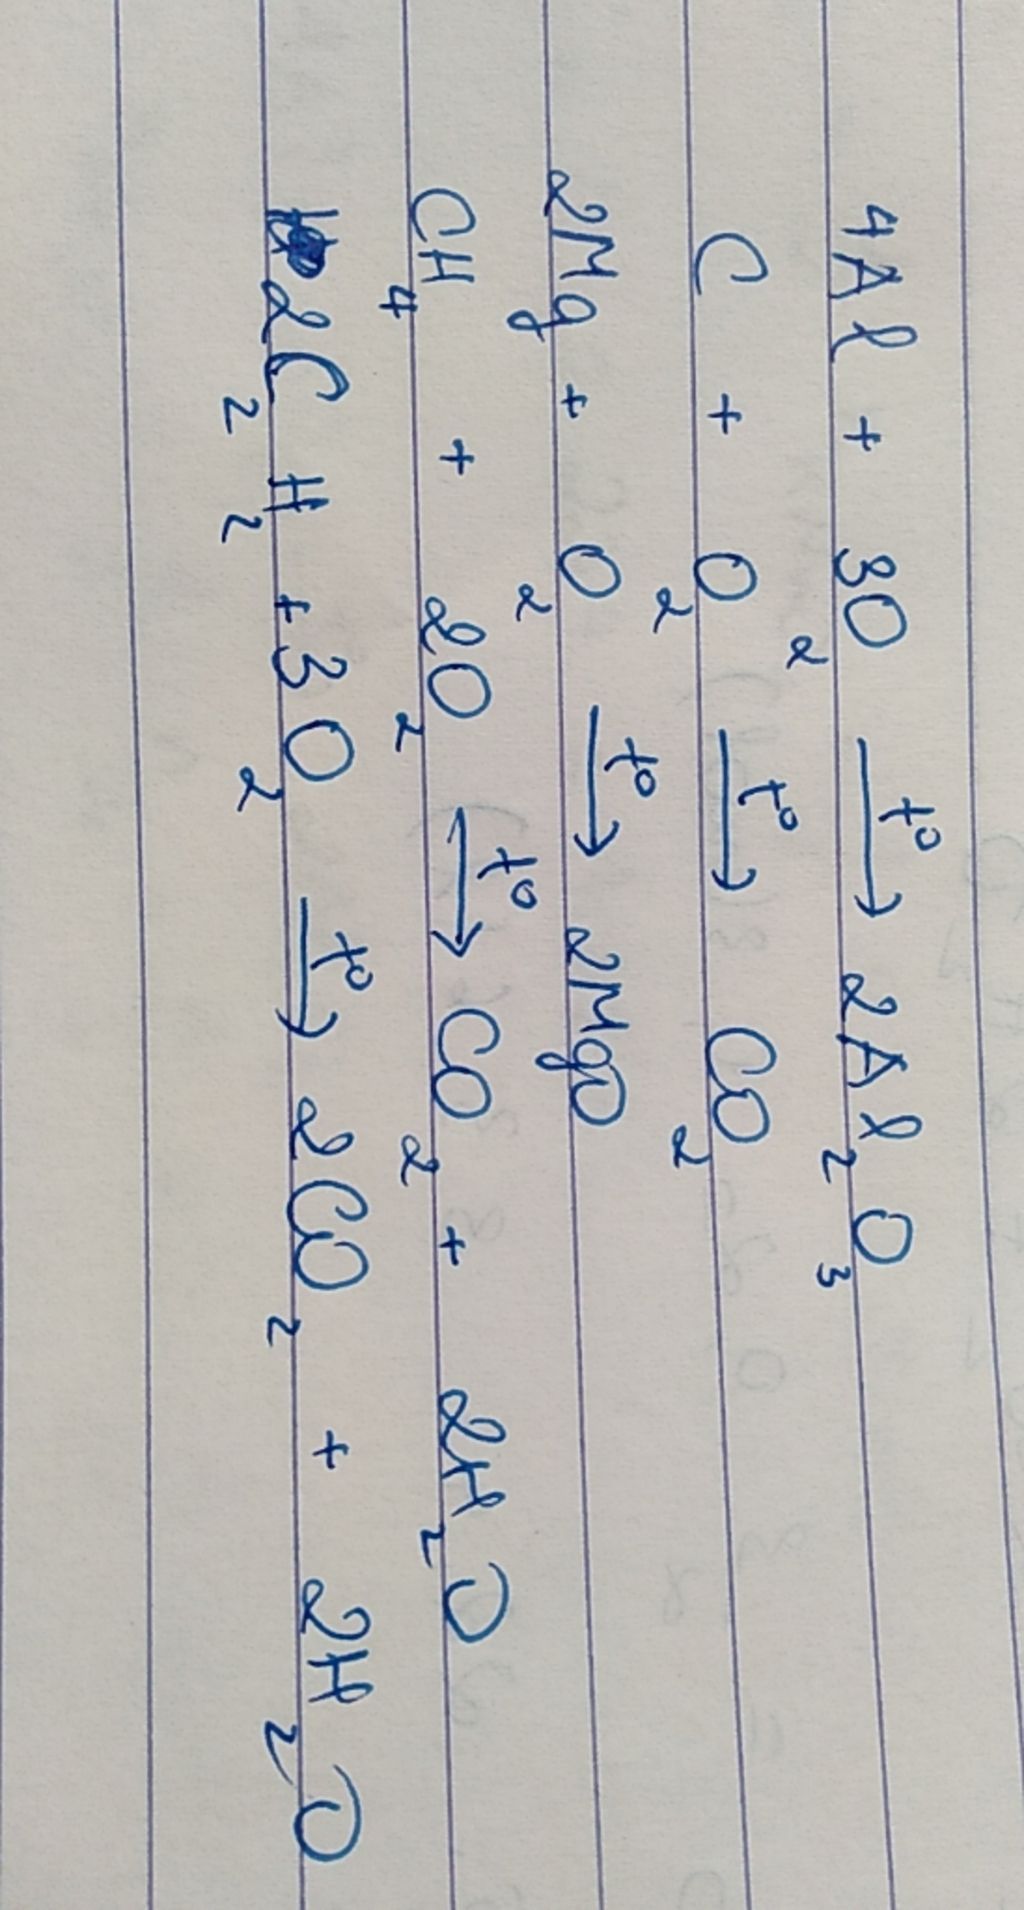 4Al + 3O₂ →t° 2Al₂O₃
C + O₂ →t° CO₂
2Mg + O₂ →t° 2MgO
CH₄ + 2O₂ →t° CO₂ + 2H₂O
2C₂H₂ + 3O₂ →t° 2CO₂ + 2H₂O